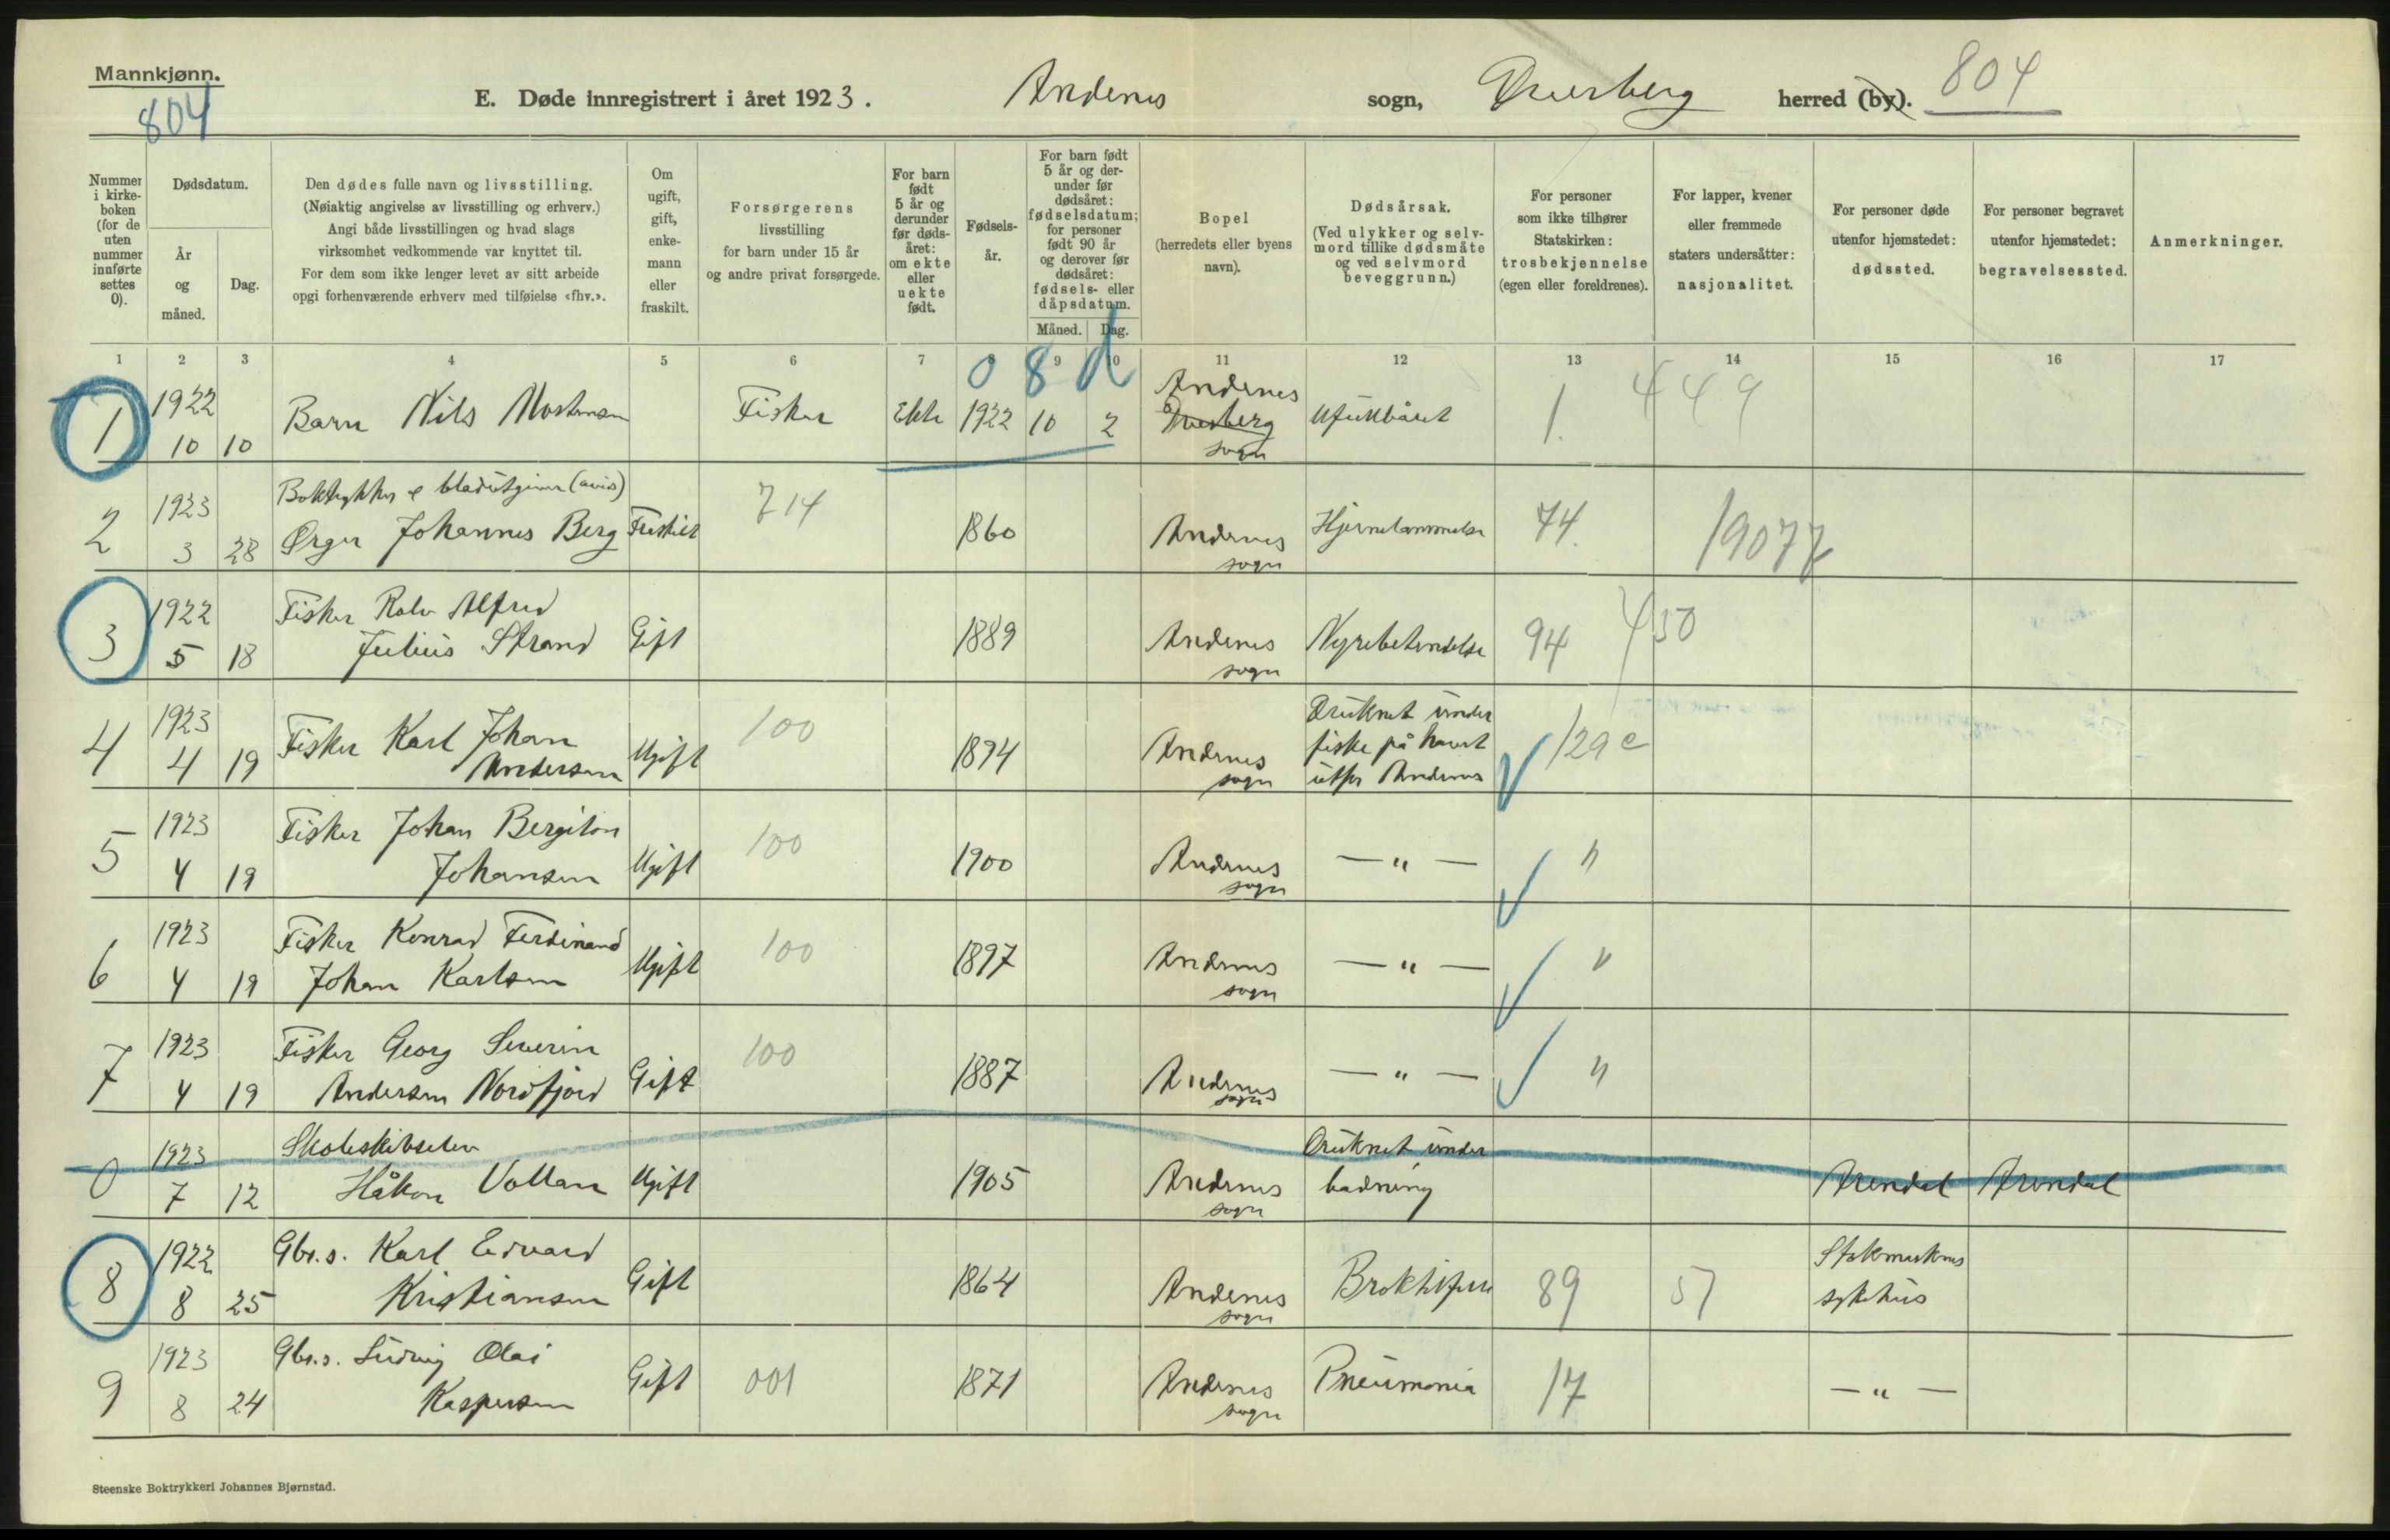 Mannkjønn.
804
E. Døde innregistrert i året 1923.
Andenes sogn, Dverberg herred (by). 804
Nummer i kirke-boken (for de uten nummer innførte settes 0).
Dødsdatum.
År og måned.
Dag.
Den dødes fulle navn og livsstilling.
(Nøiaktig angivelse av livsstilling og erhverv.)
Angi både livsstillingen og hvad slags
virksomhet vedkommende var knyttet til.
For dem som ikke lenger levet av sitt arbeide
opgi forhenværende erhverv med tilføielse «fhv.».
Om ugift, gift, enke-mann eller fraskilt.
Forsørgerens livsstilling for barn under 15 år og andre privat forsørgede.
For barn født 5 år og derunder før døds-året: om ekte eller uekte født.
Fødsels-år.
For barn født 5 år og der-under før dødsåret: fødselsdatum; for personer født 90 år og derover før dødsåret: fødsels- eller dåpsdatum.
Måned. Dag.
Bopel (herredets eller byens navn).
Dødsårsak. (Ved ulykker og selv-mord tillike dødsmåte og ved selvmord beveggrunn.)
For personer som ikke tilhører Statskirken: trosbekjennelse (egen eller foreldrenes).
For lapper, kvener eller fremmede staters undersåtter: nasjonalitet.
For personer døde utenfor hjemstedet: dødssted.
For personer begravet utenfor hjemstedet: begravelsessted.
Anmerkninger.
1 2 3 4 5 6 7 8 9 10 11 12 13 14 15 16 17
0 8 d
1 1922 10 10 Barn Nils Mostensen Fisker Ekte 1922 10 2 Andenes Dverberg sogn Ufullbåret 1. 449
Boktrykker & bladutgiver (avis)
2 1923 3 28 Ørger Johannes Berg Fraskilt 714 1860 Andenes sogn Hjernelammelse 74. 19077
3 1922 5 18 Fisker Rolv Alfred
Julius Strand Gift 1889 Andenes sogn Nyrebetendelse 94 450
4 1923 4 19 Fisker Karl Johan
Andersen Ugift 100 1894 Andenes sogn Druknet under
fiske på havet
utfor Andenes 129 c
5 1923 4 19 Fisker Johan Bergiton
Johansen Ugift 100 1900 Andenes sogn — " — "
6 1923 4 19 Fisker Konrad Ferdinand
Johan Karlsen Ugift 100 1897 Andenes sogn — " — "
7 1923 4 19 Fisker Georg Severin
Andersen Nordfjord Gift 100 1887 Andenes sogn — " — "
0 1923 7 12 Skoleskibselev
Håkon Vollan Ugift 1905 Andenes sogn Druknet under
badning Arendal Arendal
8 1922 8 25 Gbr.s. Karl Edvard
Kristiansen Gift 1864 Andenes sogn 89 57 Stokmarknes
sykehus
9 1923 8 24 Gbr.s. Ludvig Olai
Kaspersen Gift 001 1871 Andenes sogn Pneumonia 17 — " —
Steenske Boktrykkeri Johannes Bjørnstad.